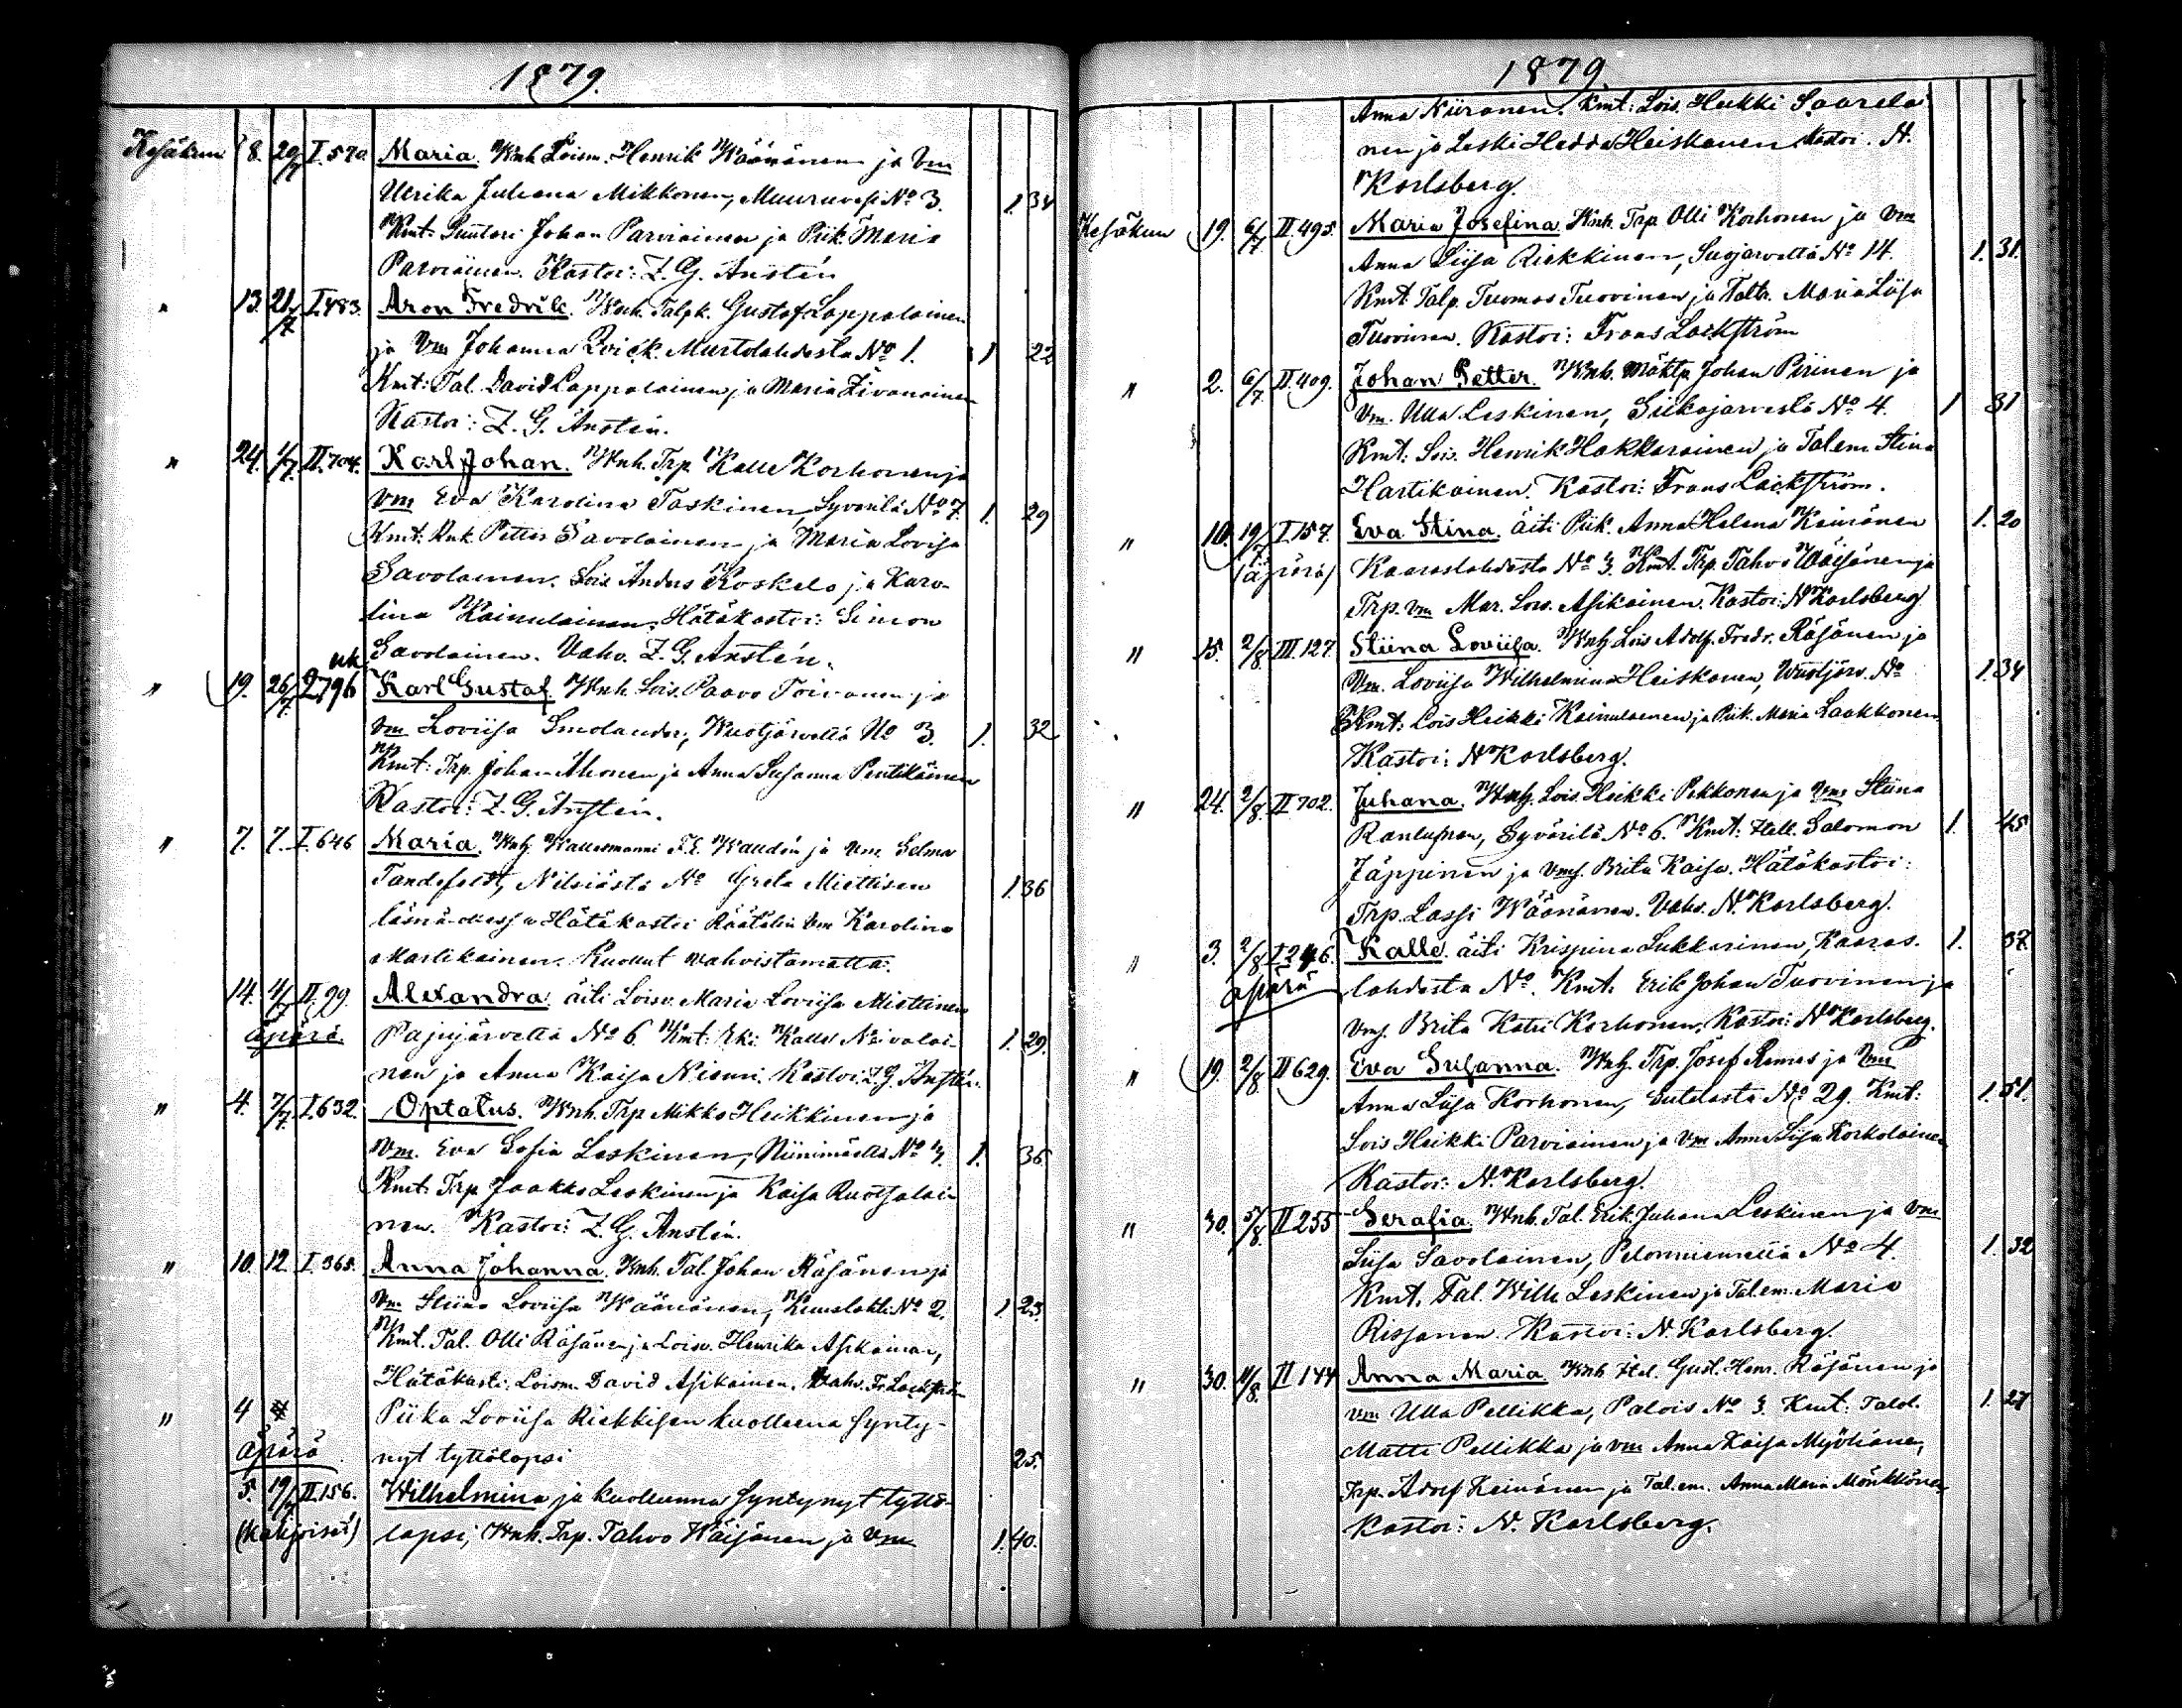 1879.
Kesäkuu 8. 29/7 I.570 Maria. Wnh. Loism. Henrik Wäänänen ja Vm
Ulrika Juliana Mikkonen, Muuruvesi No 3. 1. 34
Kmt. Suutari Johan Parviainen ja Piik. Maria
Parviainen. Kastoi: Z. G. Anstén
" 13. 21/7 I.483. Aron Fredrik. Wnh. Talpk. Gustaf Lappalainen
ja Vm Johanna Qvick. Murtolahdesta No 1. 1 22
Kmt: Tal. David Lappalainen ja Maria
Kastoi: Z. G. Anstén.
" 24. 4/7. II.704. Karl Johan. Wnh. Trp. Kalle Korhonen ja
Vm Eva Karolina Taskinen Syvärilä No 7. 1. 29
Kmt. Rnk. Petter Savolainen ja Maria Lovisa
Savolainen. Lois. Anders Koskelo ja Karo-
lina Kainulainen. Hätäkastoi: Simon
Savolainen. Vahv. Z. G. Anstén.
" 19. 26/7. uk 2796 Karl Gustaf. Wnh. Lois. Paavo Toivanen ja
Vm Loviisa Smolander, Wuotjärveltä No 3. 1. 32
Kmt: Trp. Johan Ahonen ja Anna Susanna Pentikäinen
Kastoi: Z. G. Anstén.
" 7. 7. I.646 Maria. Wnh. Wallesmanni F. E. Wandén ja Vm. Selma
Tandefelt, Nilsiästä No Greta Miettisen
läsnä-ollessa Hätäkastoi Räätälin Vm Karolina
Martikainen. Kuollut vahvistamatta. 1. 36
14. 4/7 II.99. Alexandra. äiti Loisv. Maria Loviisa Miettinen
äpärä. Pajujärveltä No 6. Kmt: Rki: Kalle Naivalai- 1. 29.
nen ja Anna Kaisa Niemi. Kastoi: Z. G. Anstén.
" 4. 7/7. I.632. Optatus. Wnh. Trp. Mikko Heikkinen ja
Vm. Eva Sofia Leskinen, Niinimäeltä No 3. 1. 36.
Kmt. Trp. Jaakko Leskinen ja Kaisa Ruotsalai-
nen. Kastoi: Z. G. Anstén.
" 10. 12. I.365. Anna Johanna. Wnh. Tal. Johan Räsänen ja
Vm. Stiina Loviisa Wäänänen, No 2. 1 23.
Kmt. Tal. Olli Räsänen ja Loisv. Henrika Asikainen,
Hätäkasti: Loism. David Asikainen. Vahv. Fr. Lackström
" 4 Piika Loviisa Riekkisen kuolleena synty-
äpärä. nyt tyttölapsi 25.
5. 19/7 II.156. Wilhelmina ja kuolleena syntynyt tyttö-
(kaksoiset) lapsi, Wnh. Trp. Tahvo Wäisänen ja Vm 1. 40.
1879
Anna Niiranen. Kmt: Lois. Heikki Saarelai
nen ja Leski Hedda Heiskanen Kastoi. N.
Karlsberg
Kesäkuu 19. 6/7. II.495. Maria Josefina. Wnh. Trp. Olli Korhonen ja Vm
Anna Liisa Riekkinen, Suojärveltä No 14. 1. 31.
Kmt. Talp. Tuomas Tuovinen ja Maria Liisa
Tuovinen. Kastoi: Frans Lackström
" 2. 6/7. II.409. Johan Petter. Wnh. Mäktp. Johan Pirinen ja
Vm. Ulla Leskinen, Siikajärvestä No 4. 1 31
Kmt: Lois. Henrik Hakkarainen ja Talem. Stina
Hartikainen. Kastoi: Frans Lackström.
" 10. 19/7 I.157. Eva Stina. äiti Piik. Anna Helena Keinänen 1. 20
(äpärä) Kaaraslahdesta No 3. Kmt. Trp. Tahvo Wäisänen ja
Trp. Vm Mar. Lov. Asikainen. Kastoi: N Karlsberg
" 15. 2/8 III.127. Stiina Loviisa. Wnh. Lois Adolf. Fredr. Räsänen ja
Vm. Loviisa Wilhelmina Heiskanen, Wuotjärv. No 1. 34
Kmt: Lois Heikki Kainulainen ja Piik. Maria Laakkonen
Kastoi: N Karlsberg.
" 24. 2/8. II 702. Juhana. Wnh. Lois. Heikki Pekkonen ja Vm Stiina
Syvärilä No 6. Kmt: Itell. Salomon 1. 45
Jäppinen ja Vms. Brita Kaisa. Hätäkastoi:
Trp. Lassi Wäänänen. Vahv. N. Karlsberg.
" 3. 2/8 I.246. Kalle. äiti Krispina Lukkarinen, Kaaras- 1. 37.
äpärä lahdesta No. Kmt. Erik Johan Tuovinen ja
Vms. Brita Katri Korhonen. Kastoi: N Karlsberg.
" 19. 2/8 II 629. Eva Susanna. Wnh. Trp. Josef Remes ja Vm
Anna Liisa Korhonen, Sutelasta No 29. Kmt: 1. 51.
Lois Heikki Parviainen ja Vm Anna Liisa Korkolainen
Kastoi: N. Karlsberg.
" 30. 5/8. II 255 Serafia. Wnh. Tal. Erik. Juhana Leskinen ja Vm
Liisa Savolainen, Pelonniemeltä No 4. 1. 32
Kmt. Tal. Wilh. Leskinen ja Talem. Maria
Rissanen. Kastoi: N. Karlsberg.
" 30. 10/8. II 144 Anna Maria. Wnh. Itel. Gust. Henr. Räsänen ja
Vm Ulla Pellikka, Palois No 3. Kmt: Talol. 1. 27
Matti Pellikka ja Vm Anna Kaisa Myöhänen,
Trp. Adolf Keinänen ja Tal.em. Anna Maria Mönkkönen
Kastoi: N. Karlsberg.